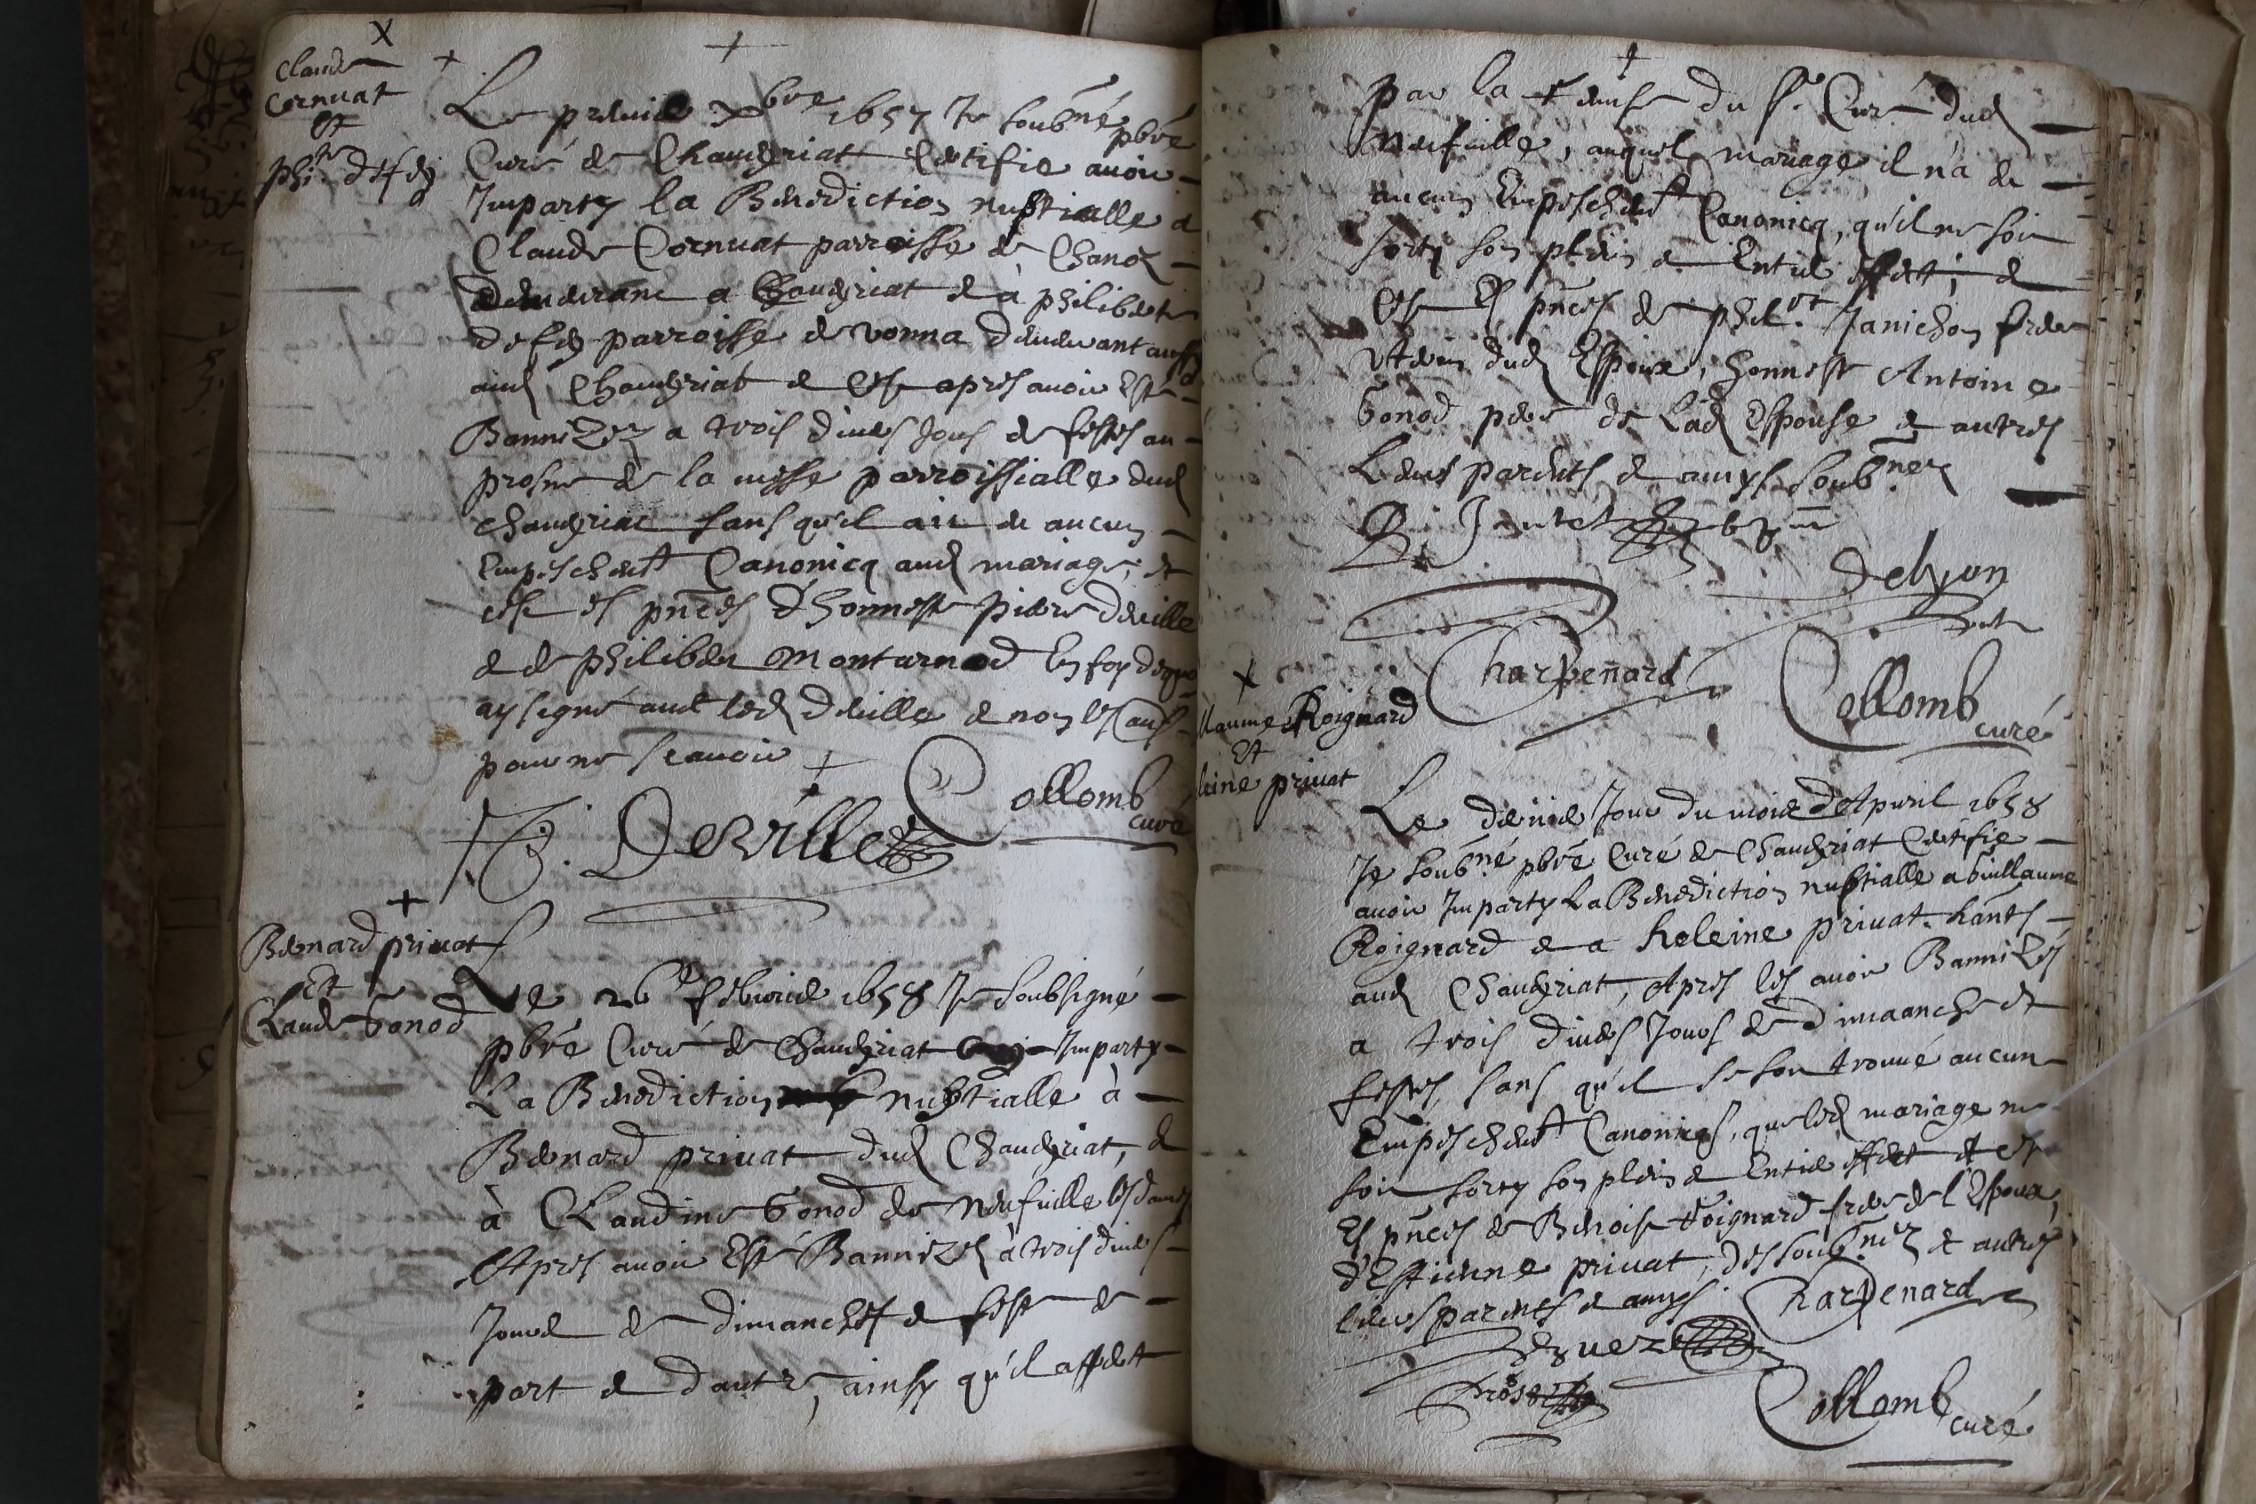 Claude
Cornuat
Et
phi.te defey
Le premier xbre 1657 Je soubné pbre
Curé de Chaveyriat Certifie avoir
Imparty la Benediction nuptialle a
Claude Cornuat parroisse de Chanoz
demeurant a Chaveyriat & à philiberte
defey parroisse de vonna demeurant aussy
aud Chaveyriat & Ce apres avoir esté
Bannizez a trois divers Jours de festes au
prosne de la messe parroissialle dud
chaveyriat sans qu'il ait eu aucun
Empeschemt Canonicq aud mariage, et
ce es pnces d'honneste pierre deville
& de philibert Monturnod En foy dequoy
ay signé avec led deville & non les aut.
pour ne scavoir
P. Deville
Collomb
curé
Bernard privat
Et
Claude Gonod
Le 26e febvrier 1658 Je soubsigné
pbre Curé de Chaveyriat ay Imparty
La Benediction nuptialle à
Bernard privat dud Chaveyriat, &
à Claudine Gonod de Neufville les dames
Apres avoir Esté Bannizes à trois divers
Jours de dimanches & feste de
part & dautre, ainsy qu'il appert
par la remise du sr. Curé dud
Neufville, auquel mariage il n'a eu
aucun Empeschemt Canonicq, qu'il ne soit
sorty son plein & Entier effect, &
Ce Es pnces de phil.rt Janichon frere
uterin dud Espoux, honneste Antoine
Gonod pere de Lad Espouse & autres
Leurs parents & amys soub.nez
B. Janet
Delyon
Charpenard
Collomb
curé
llaume Roignard
Et
leine privat
Le dernier Jour du mois d'Apvril 1658
Je soub.né pbre Curé de Chaveyriat Certifie
avoir Imparty La Benediction nuptialle a Guillaume
Roignard & a heleine privat hants
aud Chaveyriat, Apres les avoir Bannizés
a trois divers Jours de dimaanche et
festes, sans qu'il se soit trouvé aucun
Empeschemt Canonicq, que led mariage ne
soit sorty son plein & Entier effect et ce
Es pnces de Benoist Roignard frere de l'Espoux,
d'Estienne privat, des soub.nez et autres
leurs parents & amys
Charpenard
Collomb
curé